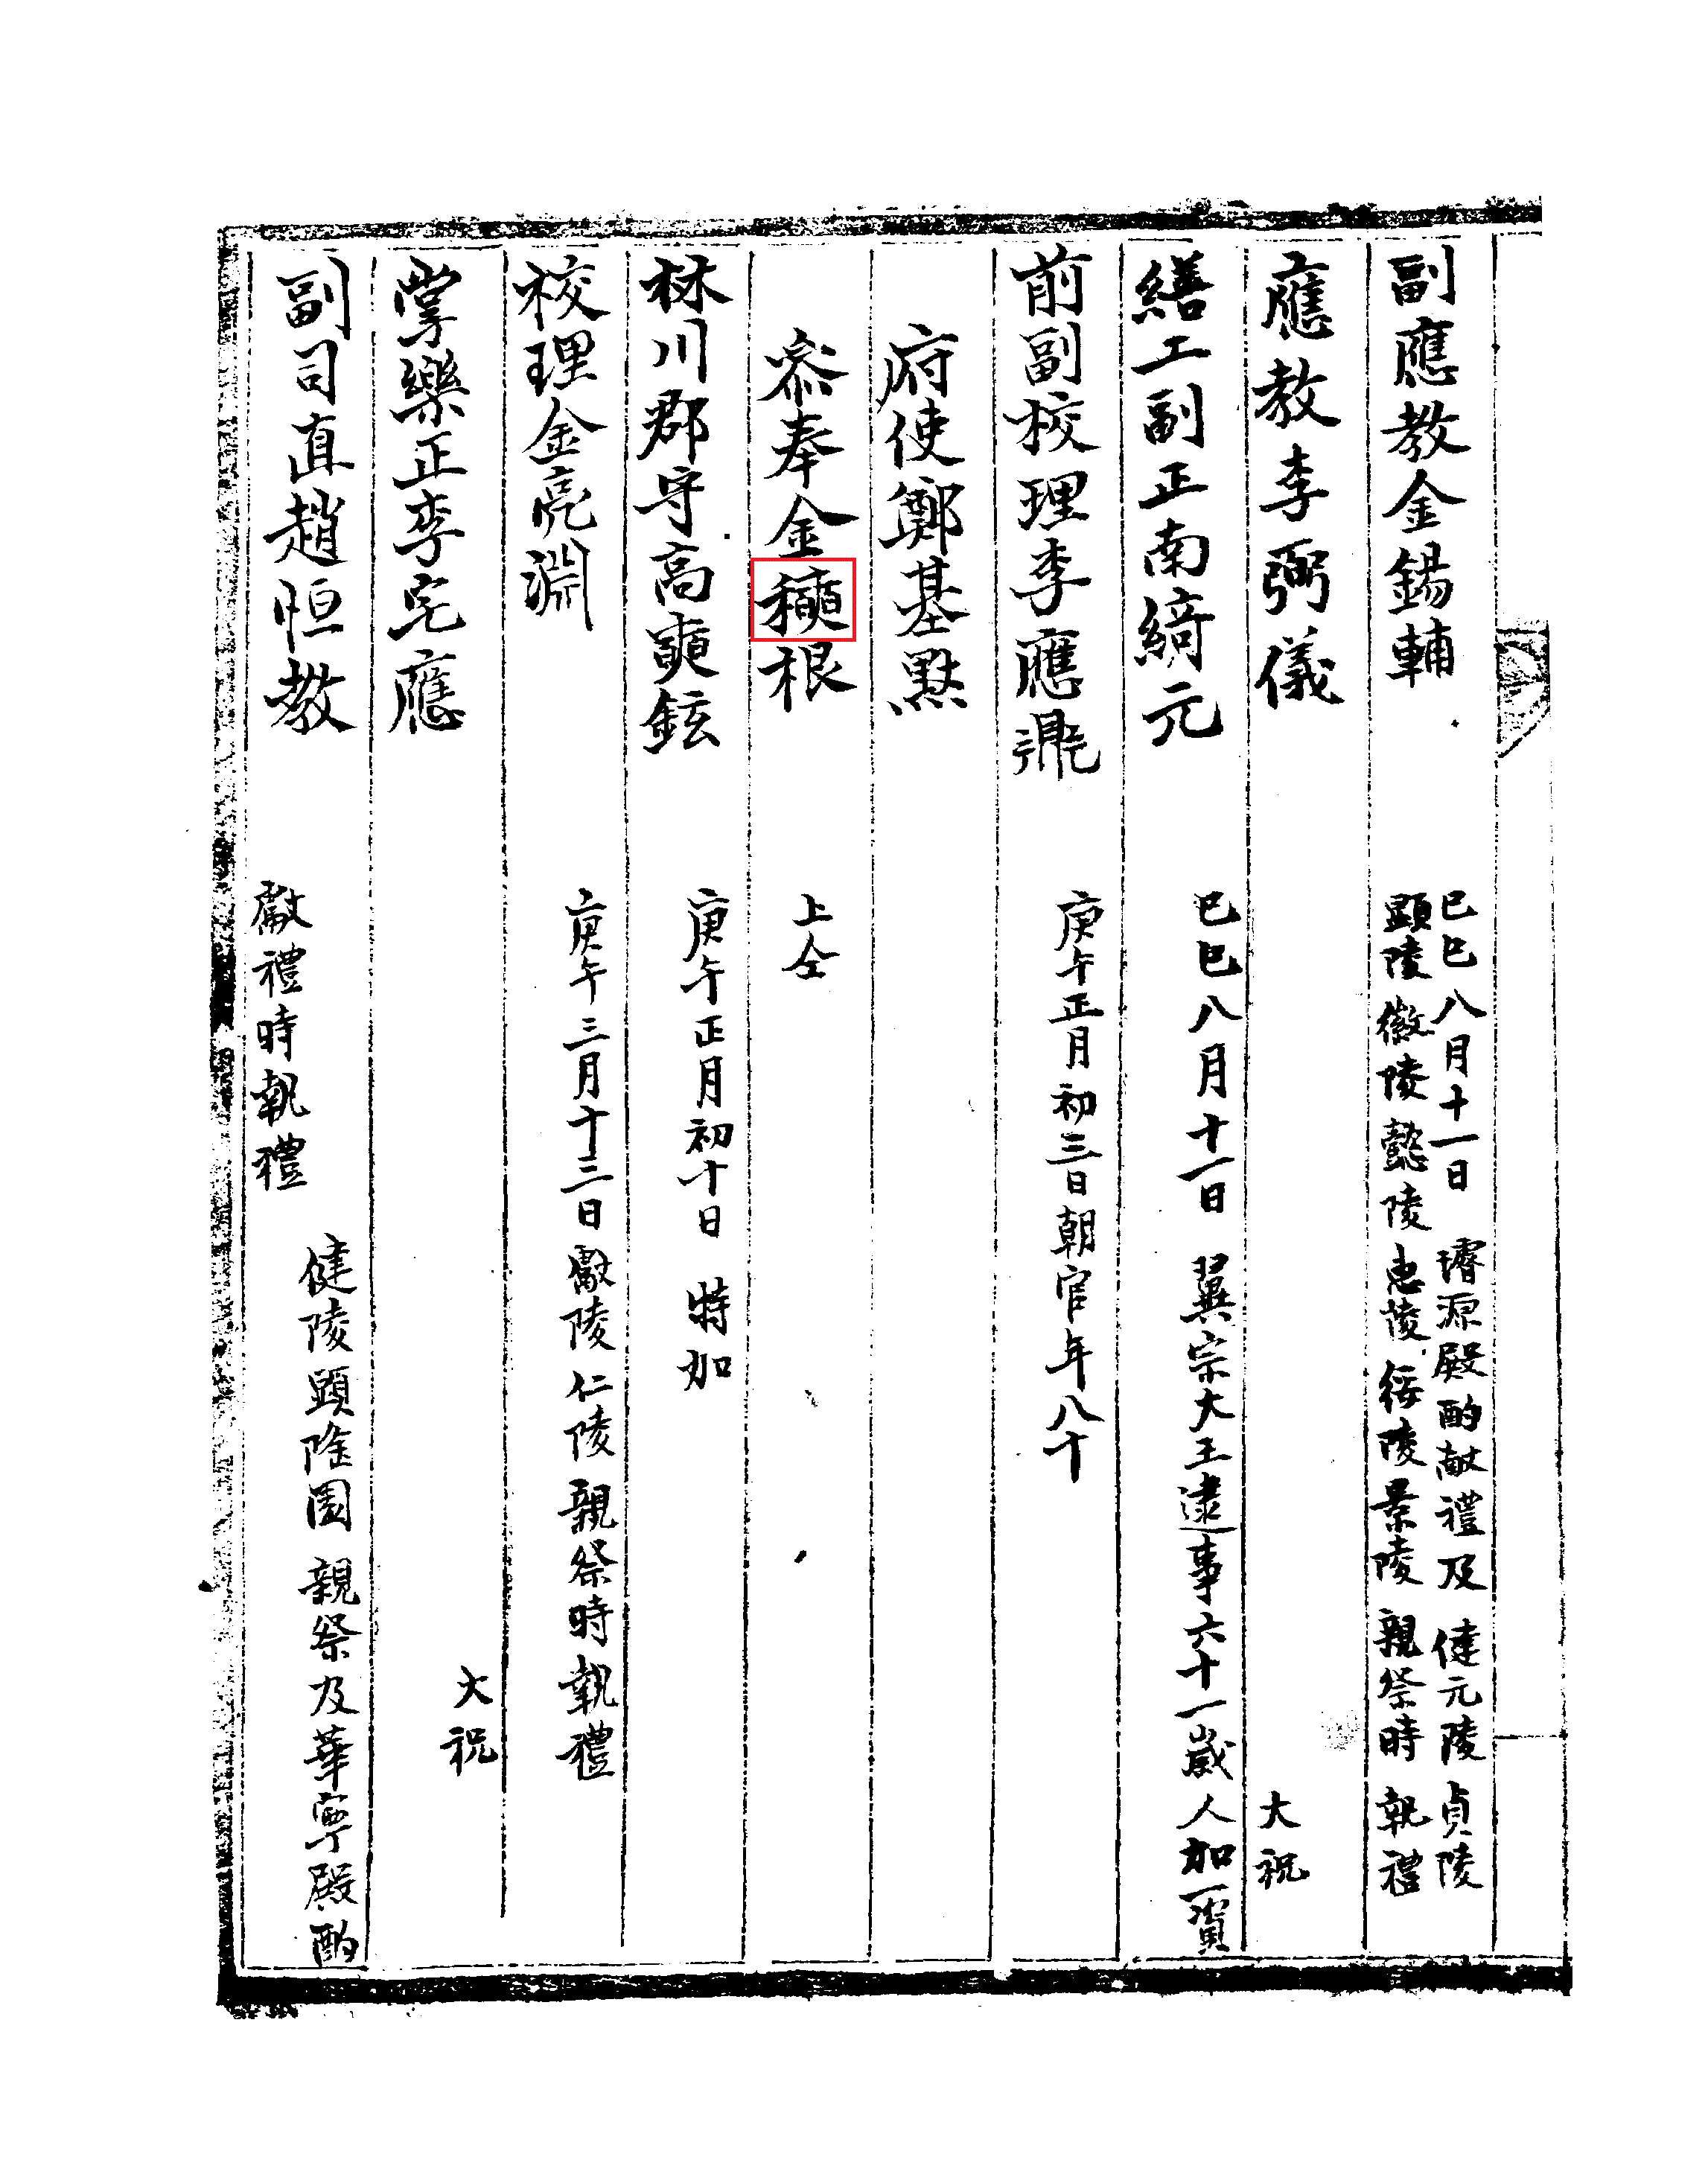 副應教金錫輔
己巳八月十一日 璿源殿酌献禮及 健元陵 貞陵
顯陵徽陵懿陵惠陵綏陵景陵 親祭時執禮
應教李弼儀 大祝
繕工副正南綺元 己巳八月十一日 翼宗大王逮事六十一歲人加一資
前副校理李應鼎 庚午正月初三日朝官年八十
府使鄭基黙
叅奉金根 上仝
林川郡守高奭鉉 庚午正月初十日 特加
校理金亮淵 庚午三月十三日獻陵仁陵親祭時執禮
掌樂正李宅應 大祝
副司直趙恒教
健陵顯隆園親祭及華寧殿酌
獻禮時執禮